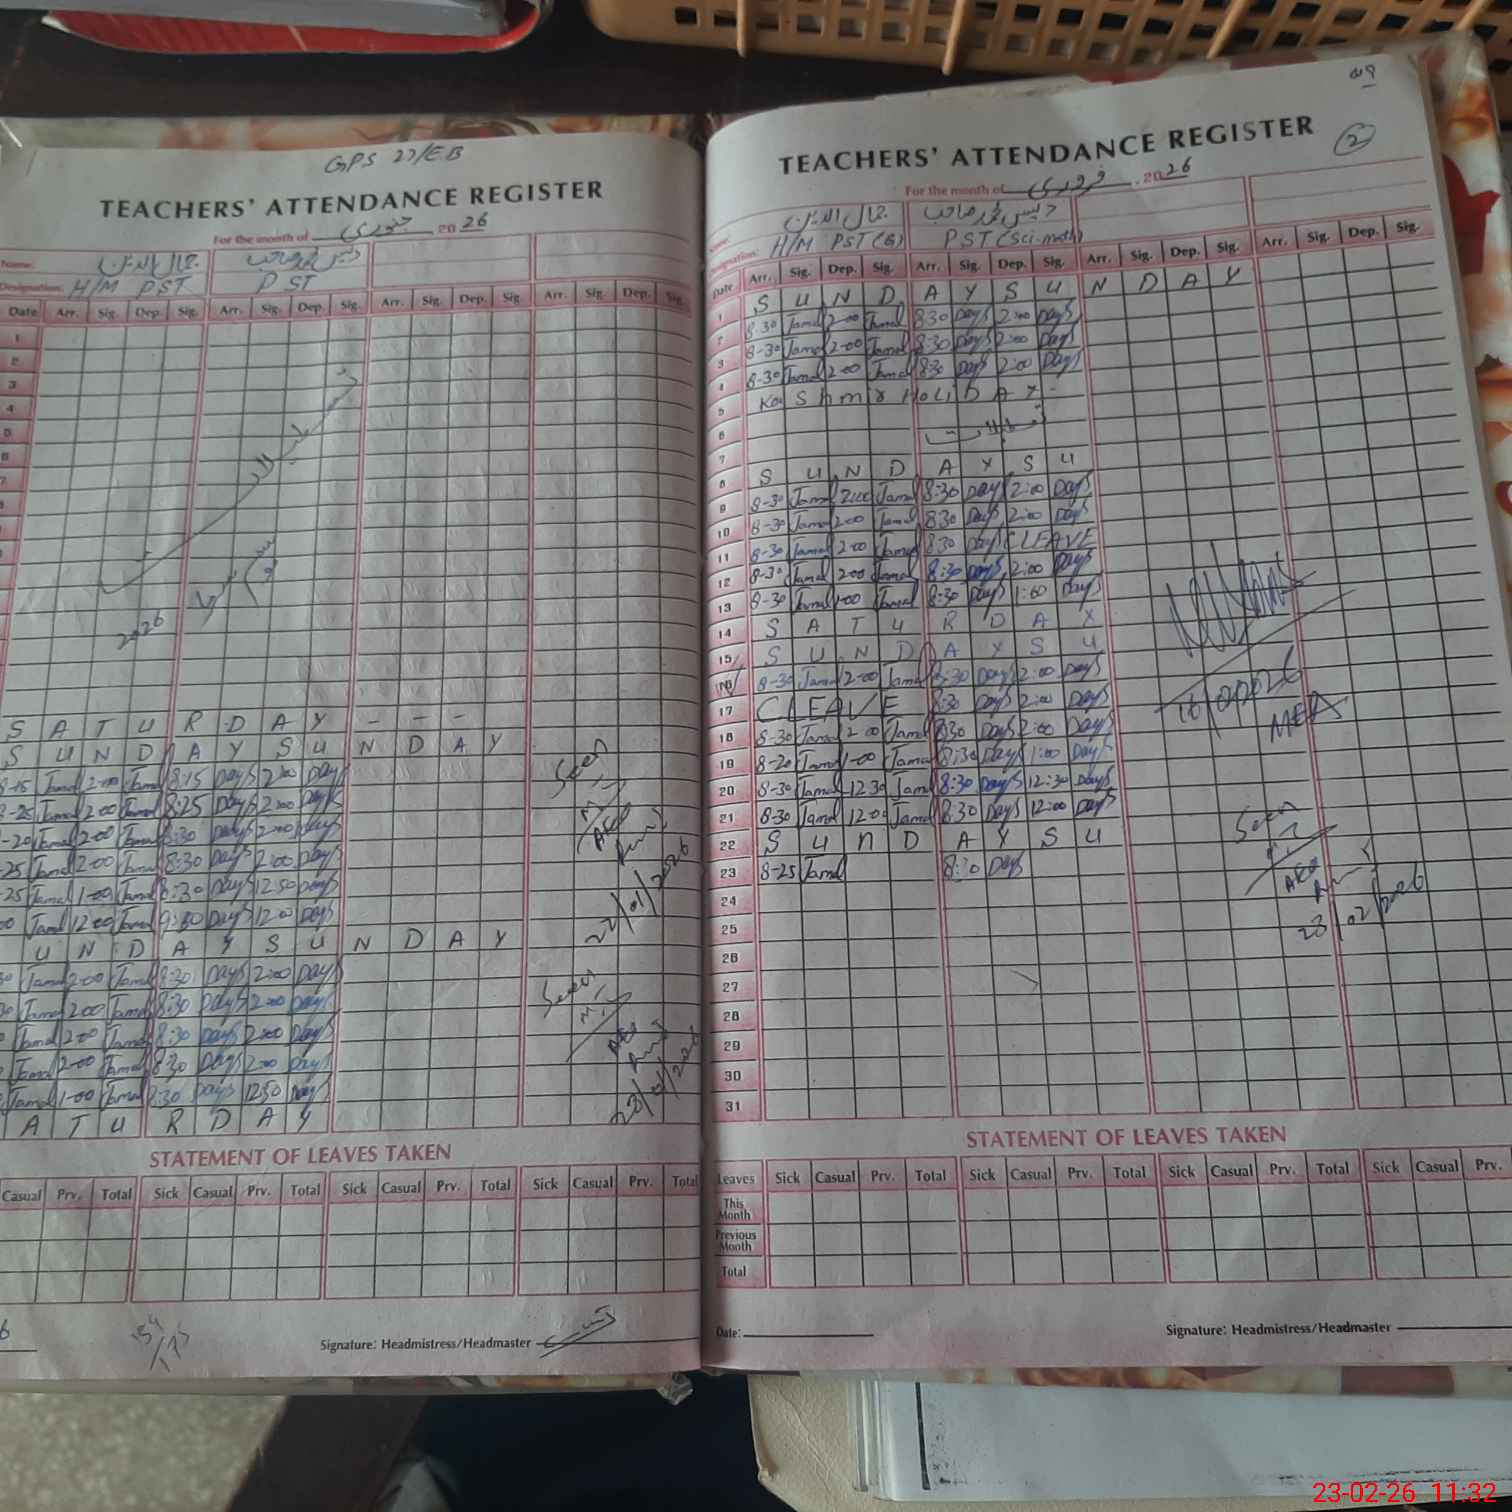 GPS 27/EB
TEACHERS' ATTENDANCE REGISTER
For the month of جنوری 2026
Name: جمال الدین
Designation: H/M PST PST
Date Arr. Sig. Dep. Sig. Arr. Sig. Dep. Sig. Arr. Sig. Dep. Sig. Arr. Sig. Dep. Sig.
1
2
3
4
5
6
7
2026
S A T U R D A Y - - -
S U N D A Y S U N D A Y
8-15 Jamal 2-00 Jamal 8:15 Days 2:00 Days
8-25 Jamal 2-00 Jamal 8:25 Days 2:00 Days
-20 Jamal 2-00 Jamal 8:30 Days 2:00 Days
-25 Jamal 2-00 Jamal 8:30 Days 2:00 Days
-25 Jamal 1-00 Jamal 8:30 Days 12:50 Days
00 Jamal 12:00 Jamal 9:30 Days 12:00 Days
U N D A Y S U N D A Y
30 Jamal 2-00 Jamal 8:30 Days 2:00 Days
Jamal 2-00 Jamal 8:30 Days 2:00 Days
Jamal 2-00 Jamal 8:30 Days 2:00 Days
Jamal 2-00 Jamal 8:30 Days 2:00 Days
Jamal 1-00 Jamal 8:30 Days 12:50 Days
A T U R D A Y
Seen
AEO
22/01/2026
Seen
AEO
28/01/2026
STATEMENT OF LEAVES TAKEN
Casual Prv. Total Sick Casual Prv. Total Sick Casual Prv. Total Sick Casual Prv. Total
154/175
Signature: Headmistress/Headmaster
TEACHERS' ATTENDANCE REGISTER
2
For the month of فروری, 2026
Name: جمال الدین
Designation: H/M PST (G) PST (Sci-math)
Date Arr. Sig. Dep. Sig. Arr. Sig. Dep. Sig. Arr. Sig. Dep. Sig. Arr. Sig. Dep. Sig.
1 S U N D A Y S U N D A Y
2 8-30 Jamal 2-00 Jamal 8:30 Days 2:00 Days
3 8-30 Jamal 2-00 Jamal 8:30 Days 2:00 Days
4 8-30 Jamal 2-00 Jamal 8:30 Days 2:00 Days
5 Ka S h m i r HoLi D A Y
6
7
8 S U N D A Y S U
9 8-30 Jamal 2:00 Jamal 8:30 Days 2:00 Days
10 8-30 Jamal 2-00 Jamal 8:30 Days 2:00 Days
11 8-30 Jamal 2-00 Jamal 8:30 Days CLEAVE
12 8-30 Jamal 2-00 Jamal 8:30 Days 2:00 Days
13 8-30 Jamal 1-00 Jamal 8:30 Days 1:00 Days
14 S A T U R D A Y
15 S U N D A Y S U
16 8-30 Jamal 2-00 Jamal 8:30 Days 2:00 Days
17 C LEAVE 8:30 Days 2:00 Days
18 8-30 Jamal 2-00 Jamal 8:30 Days 2:00 Days
19 8-20 Jamal 1-00 Jamal 8:30 Days 1:00 Days
20 8-30 Jamal 12-30 Jamal 8:30 Days 12:30 Days
21 8-30 Jamal 12-00 Jamal 8:30 Days 12:00 Days
22 S U N D A Y S U
23 8-25 Jamal 8:30 Days
24
25
26
27
28
29
30
31
MEA
Seen
AEO
23/02/2026
STATEMENT OF LEAVES TAKEN
Leaves Sick Casual Prv. Total Sick Casual Prv. Total Sick Casual Prv. Total Sick Casual Prv.
This Month
Previous Month
Total
Date:
Signature: Headmistress/Headmaster
23-02-26 11:32